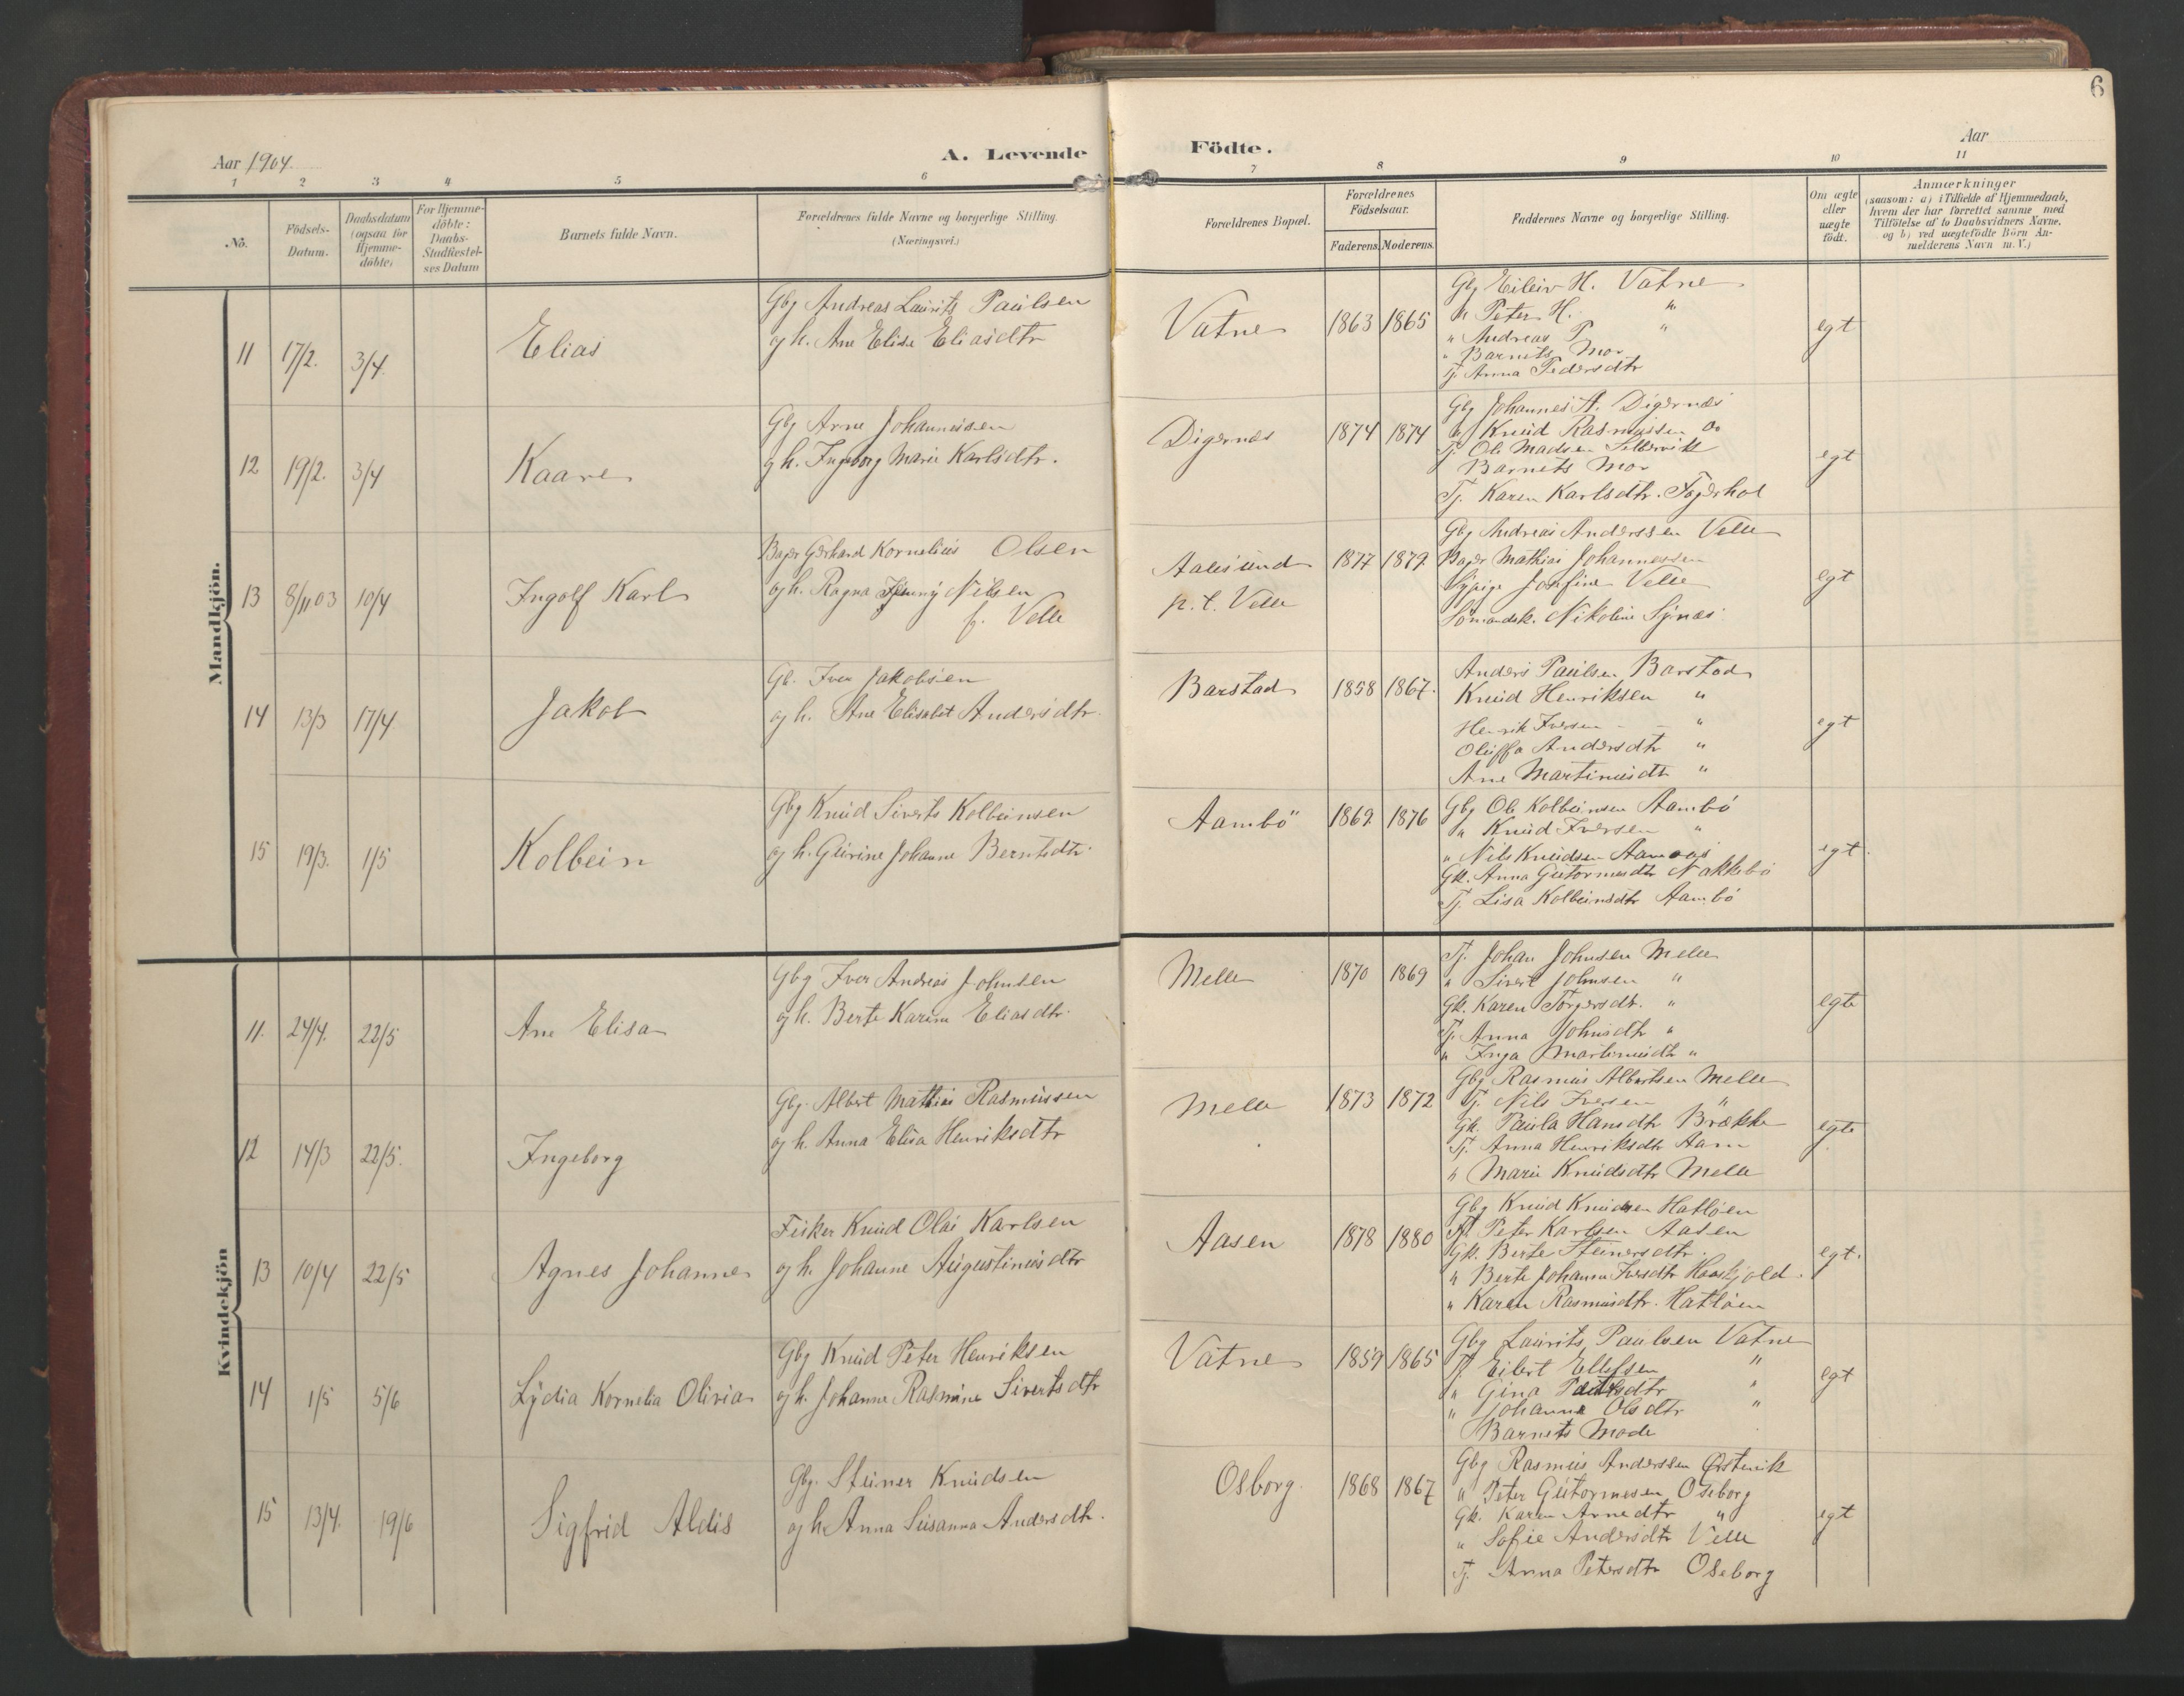 6
Aar 1904
A. Levende
Födte.
Aar
1 2 3 4 5 6 7 8 9 10 11
No.
Födsels-
Datum.
Daabsdatum
(ogsaa for
Hjemme-
döbte)
For Hjemme-
döbte:
Daabs-
Stadfæstel-
ses Datum
Barnets fulde Navn.
Forældrenes fulde Navne og borgerlige Stilling.
(Næringsvei.)
Forældrenes Bopæl.
Forældrenes
Födselsaar.
Faderens. Moderens.
Faddernes Navne og borgerlige Stilling.
Om ægte
eller
uægte
födt.
Anmærkninger
(saasom: a) i Tilfælde af Hjemmedaab,
hvem der har forrettet samme med
Tilföielse af to Daabsvidners Navne,
og b) ved uægtefödte Börn An-
melderens Navn m. V.)
Mandkjön.
11 17/2. 3/4. Elias
Gbg Andreas Laurits Paulsen
og h. Ane Elise Eliasdtr
Vatne 1863 1865
Gbg Eileiv H. Vatne
" Peter H. "
" Andreas P. "
" Barnets Mor
Tj. Anna Pedersdtr
egt
12 19/2. 3/4 Kaare
Gbg Arne Johannessen
og h. Ingeborg Marie Karlsdtr.
Digernes 1874 1874
Gbg Johannes A. Digernæs
" Knud Rasmussen do
Tj. Ole Madsen
Barnets Mor
Tj. Karen Karlsdtr. Fagerhol
egt
13 8/11 03 10/4 Ingolf Karl
Bager Gerhard Kornelius Olsen
og h. Ragna Jenny Nilsen
f. Velle
Aalesund
p.t. Velle
1877 1879
Gbg Andreas Anderssen Velle
Bager Mathias Johannessen
Sypige Josefine Velle
Sömandsk. Nikoline Synæs
egt
14 13/3 17/4 Jakob
Gb. Iver Jakobsen
og h. Ane Elisabet Andersdtr.
Barstad 1858 1867.
Anders Paulsen Barstad
Knud Henriksen "
Henrik Iversen - - "
Oluffa Andersdtr "
Ane Martinusdtr "
egt
15 19/3. 1/5 Kolbein
Gbg Knud Siverts Kolbeinsen
og h. Gurine Johanne Berntsdtr.
Aambö 1869. 1876
Gbg Ole Kolbeinsen Aambö
" Knud Iversen "
" Nils Knudsen Aamaas
Gk. Anna Guttormsdtr Nakkebö
Tj. Lisa Kolbeinsdtr Aambö
egt.
Kvindekjön
11. 24/4. 22/5 Ane Elisa
Gbg Iver Andreas Johnsen
og h. Berte Karine Eliasdtr.
Melle 1870 1869
Tj. Johan Johnsen Melle
" Sivert Johnsen "
Gk. Karen Torgersdtr. "
Tj. Anna Johnsdtr "
" Inga Martinusdtr "
egte
12 14/3 22/5. Ingeborg
Gbg. Albert Mathias Rasmussen
og h. Anna Elisa Henriksdtr
Melle 1873 1872
Gbg Rasmus Albertsen Melle
Tj. Nils Iversen "
Gk. Paula Hansdtr Brække
Tj. Anna Henriksdtr Aam
" Marie Knudsdtr Melle
egte
13 10/4 22/5 Agnes Johanne
Fisker Knud Olai Karlsen
og h. Johanne Augustinusdtr
Aasen 1878 1880
Gbg Knud Knudsen Hatlöen
Tj. Peter Karlsen Aasen
Gk. Berte Steinersdtr.
" Berte Johanne Iversdtr Haaskjold.
" Karen Rasmusdtr. Hatlöen
egt.
14 1/5 5/6 Lydia Kornelia Olivia
Gbg Knud Peter Henriksen
og h. Johanne Rasmine Sivertsdtr
Vatne 1859 1865
Gbg Laurits Paulsen Vatne
Tj. Eilert Ellefsen "
" Gina "
" Johanne Olsdtr "
Barnets Mode
egt
15 13/4. 19/6 Sigfrid Aldis
Gbg. Steiner Knudsen
og h. Anna Susanna Andersdtr.
Osborg. 1868 1867
Gbg Rasmus Anderssen Örstenvik
" Peter Guttormesen Oseborg
Gk. Karen Arnedtr "
" Sofie Andersdtr Velle
Tj. Anna Petersdtr Oseborg
egt